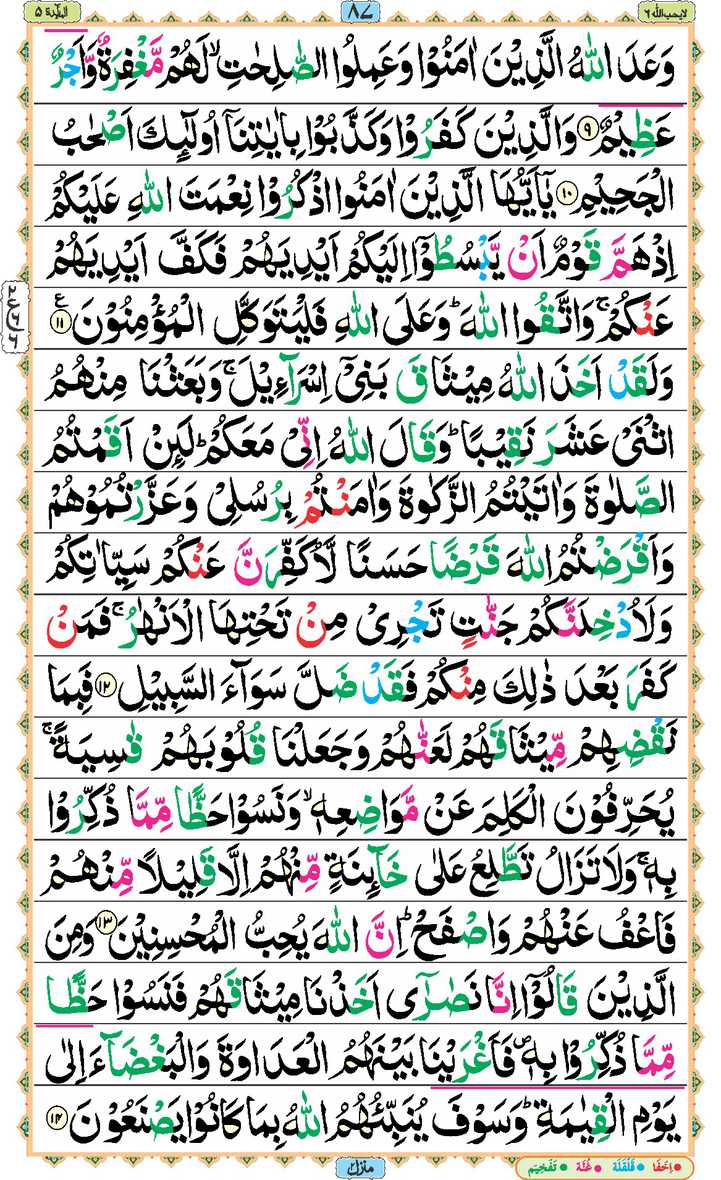 لایحب اللہ ۶ ۸۷ المآئدة ۵
وَعَدَ اللّٰهُ الَّذِيْنَ اٰمَنُوْا وَعَمِلُوا الصّٰلِحٰتِ ۙ لَهُمْ مَّغْفِرَةٌ وَّاَجْرٌ
عَظِيْمٌ ۹ وَالَّذِيْنَ كَفَرُوْا وَكَذَّبُوْا بِاٰيٰتِنَاۤ اُولٰٓئِكَ اَصْحٰبُ
الْجَحِيْمِ ۱۰ يٰۤاَيُّهَا الَّذِيْنَ اٰمَنُوا اذْكُرُوْا نِعْمَتَ اللّٰهِ عَلَيْكُمْ
اِذْ هَمَّ قَوْمٌ اَنْ يَّبْسُطُوْۤا اِلَيْكُمْ اَيْدِيَهُمْ فَكَفَّ اَيْدِيَهُمْ
عَنْكُمْ ۚ وَاتَّقُوا اللّٰهَ ؕ وَعَلَى اللّٰهِ فَلْيَتَوَكَّلِ الْمُؤْمِنُوْنَ ۱۱ ع
وَلَقَدْ اَخَذَ اللّٰهُ مِيْثَاقَ بَنِيْۤ اِسْرَآءِيْلَ ۚ وَبَعَثْنَا مِنْهُمُ
اثْنَيْ عَشَرَ نَقِيْبًا ؕ وَقَالَ اللّٰهُ اِنِّيْ مَعَكُمْ ؕ لَئِنْ اَقَمْتُمُ
الصَّلٰوةَ وَاٰتَيْتُمُ الزَّكٰوةَ وَاٰمَنْتُمْ بِرُسُلِيْ وَعَزَّرْتُمُوْهُمْ
وَاَقْرَضْتُمُ اللّٰهَ قَرْضًا حَسَنًا لَّاُكَفِّرَنَّ عَنْكُمْ سَيِّاٰتِكُمْ
وَلَاُدْخِلَنَّكُمْ جَنّٰتٍ تَجْرِيْ مِنْ تَحْتِهَا الْاَنْهٰرُ ۚ فَمَنْ
كَفَرَ بَعْدَ ذٰلِكَ مِنْكُمْ فَقَدْ ضَلَّ سَوَآءَ السَّبِيْلِ ۱۲ فَبِمَا
نَقْضِهِمْ مِّيْثَاقَهُمْ لَعَنّٰهُمْ وَجَعَلْنَا قُلُوْبَهُمْ قٰسِيَةً ۚ
يُحَرِّفُوْنَ الْكَلِمَ عَنْ مَّوَاضِعِهٖ ۙ وَنَسُوْا حَظًّا مِّمَّا ذُكِّرُوْا
بِهٖ ۚ وَلَا تَزَالُ تَطَّلِعُ عَلٰى خَآئِنَةٍ مِّنْهُمْ اِلَّا قَلِيْلًا مِّنْهُمْ
فَاعْفُ عَنْهُمْ وَاصْفَحْ ؕ اِنَّ اللّٰهَ يُحِبُّ الْمُحْسِنِيْنَ ۱۳ وَمِنَ
الَّذِيْنَ قَالُوْۤا اِنَّا نَصٰرٰۤى اَخَذْنَا مِيْثَاقَهُمْ فَنَسُوْا حَظًّا
مِّمَّا ذُكِّرُوْا بِهٖ ۪ فَاَغْرَيْنَا بَيْنَهُمُ الْعَدَاوَةَ وَالْبَغْضَآءَ اِلٰى
يَوْمِ الْقِيٰمَةِ ؕ وَسَوْفَ يُنَبِّئُهُمُ اللّٰهُ بِمَا كَانُوْا يَصْنَعُوْنَ ۱۴
منزل ۲ اِخفَا قَلقَلَة غُنَّة تَفْخِيْم